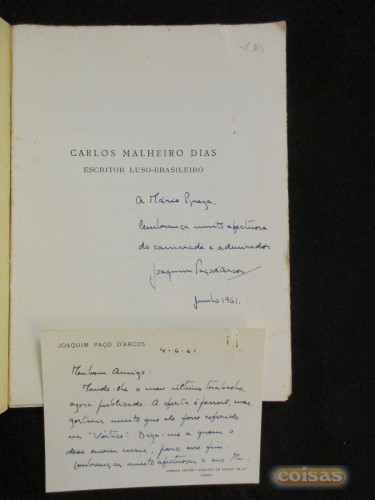 130,
CARLOS MALHEIRO DIAS
ESCRITOR LUSO-BRASILEIRO
A Mário Braga,
lembrança muito afectuosa
do camarada e admirador
Joaquim Paço d'Arcos
Junho 1961.
JOAQUIM PAÇO D'ARCOS
4-6-61
Meu bom Amigo:
Mando-lhe o meu último trabalho,
agora publicado. A oferta é pessoal, mas
gostaria muito que ele fosse referido
na "Vértice". Diga-me a quem o
devo enviar mais, para esse fim.
Lembranças muito afectuosas do seu
LISBOA
coisas